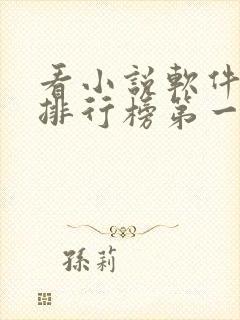 看小説軟件
排行榜第一
孫莉